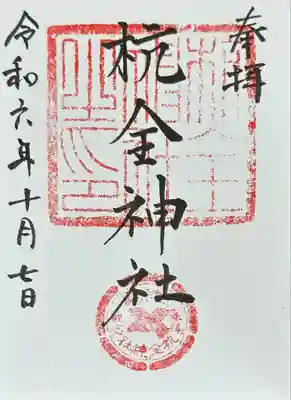 奉拝
杭全神社
令和六年十月七日